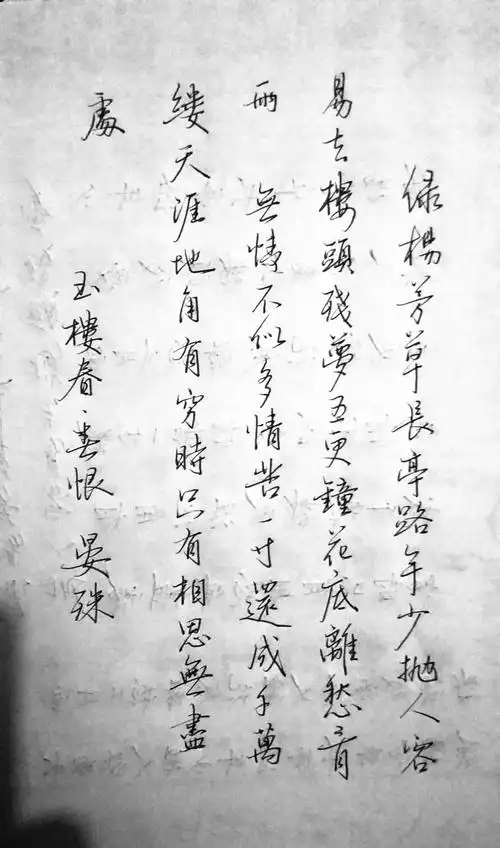 绿杨芳草長亭路年少抛人容
易去樓頭殘夢五更鐘花底離愁三月
雨　無情不似多情苦一寸還成千萬
缕天涯地角有穷時只有相思無盡
處
玉樓春·春恨　晏殊